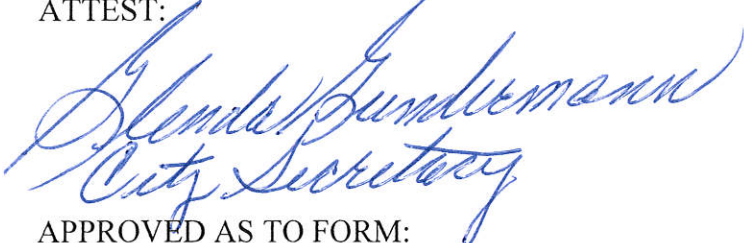 ATTEST:
Glenda Gundermann
City Secretary
APPROVED AS TO FORM: